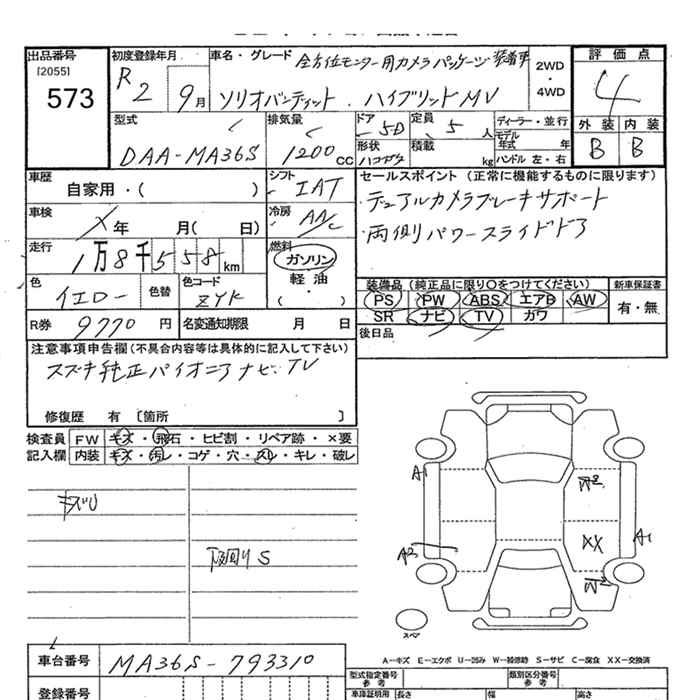 出品番号
[2055]
573
初度登録年月
R2 9月
車名・グレード
全方位モニター用カメラパッケージ装着車
ソリオバンディット ハイブリッドMV
2WD
・
4WD
評価点
4
外装 内装
B B
型式
DAA-MA36S
排気量
1200 CC
ドア
5D
形状
定員
5 人
積載
kg
ディーラー・並行
モデル
年式 年
ハンドル 左・右
車歴
自家用・( )
シフト
IAT
セールスポイント (正常に機能するものに限ります)
・デュアルカメラブレーキサポート
・両側パワースライドドア
車検
年 月( 日)
冷房
AAC
走行
1万8千558km
燃料
ガソリン
・
軽油
・
( )
色
イエロー
色替
色コード
ZYK
装備品 (純正品に限り○をつけてください)
PS PW ABS エアB AW
SR ナビ TV カワ
新車保証書
有・無
R券 9770 円
名変通知期限 月 日
後日品
注意事項申告欄(不具合内容等は具体的に記入して下さい)
スズキ純正パイオニアナビ、TV
修復歴 有 [箇所 ]
検査員
記入欄
FW キズ・飛石・ヒビ割・リペア跡・×要
内装 キズ・汚レ・コゲ・穴・スレ・キレ・破レ
キズU
下回りS
A1
A2
W2
XX
A1
W2
スペア
A-キズ E-エクボ U-凹み W-補修跡 S-サビ C-腐食 XX-交換済
車台番号 MA36S-793310
型式指定番号
参考
類別区分番号
参考
登録番号
車庫証明用
参考
長さ 幅 高さ